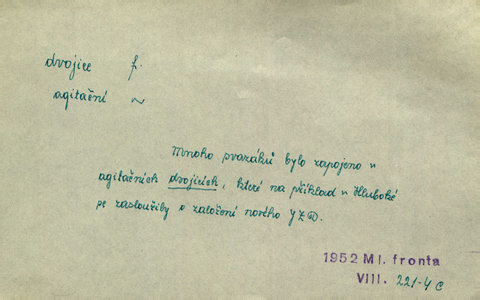 dvojice f.
agitační ~
Mnoho svazáků bylo zapojeno v
agitačních dvojicích, které na příklad v Hluboké
se zasloužily o založení nového JZD.
1952 Ml. fronta
VIII. 221-4c